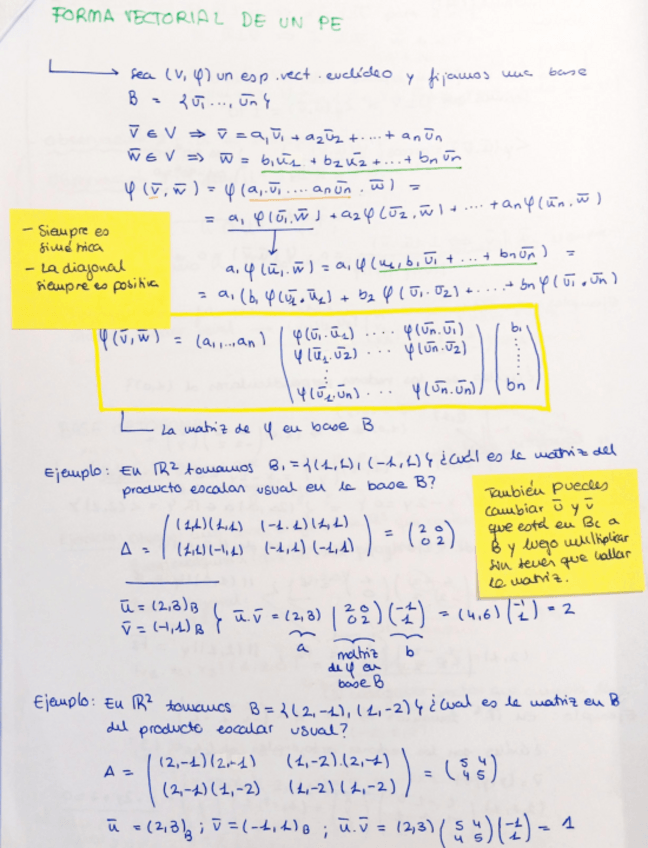 FORMA VECTORIAL DE UN PE
Sea (V, φ) un esp. vect. euclídeo y fijamos una base
B = {ū₁ ..., ūn}
v̄ ∈ V ⇒ v̄ = a₁ū₁ + a₂ū₂ + ... + anūn
w̄ ∈ V ⇒ w̄ = b₁ū₁ + b₂ū₂ + ... + bnūn
φ(v̄, w̄) = φ(a₁.ū₁ .... anūn . w̄) =
= a₁ φ(ū₁.w̄) + a₂φ(ū₂, w̄) + ... + anφ(ūn.w̄)
- Siempre es simétrica
- La diagonal siempre es positiva
a₁φ(ū₁.w̄) = a₁φ(u₁, b₁ū₁ + ... + bnūn) =
= a₁(b₁φ(ū₁.ū₁) + b₂ φ(ū₁.ū₂) + ..... + bnφ(ū₁.ūn)
φ(v̄, w̄) = (a₁,..., an) ( φ(ū₁.ū₁) .... φ(ūn.ū₁) ) ( b₁ )
φ(ū₁.ū₂) ... φ(ūn.ū₂)
φ(ū₁.ūn) .... φ(ūn.ūn) bn
La matriz de φ en base B
Ejemplo: En ℝ² tomamos B₁ = {(1,1), (-1,1)} ¿Cuál es la matriz del
producto escalar usual en la base B?
A = ( (1,1)(1,1) (-1.1)(1,1) ) = ( 2 0 )
(1,1)(-1,1) (-1,1)(-1,1) 0 2
También puedes
cambiar ū y v̄
que está en Bc a
B y luego multiplicar
sin tener que hallar
la matriz.
ū = (2,3)B } ū.v̄ = (2,3) ( 2 0 ) ( -1 ) = (4,6) ( -1 ) = 2
v̄ = (-1,1)B 0 2 1 1
a matriz b
de φ en
base B
Ejemplo: En ℝ² tomamos B = {(2,-1), (1,-2)} ¿Cual es la matriz en B
del producto escalar usual?
A = ( (2,-1)(2,-1) (1,-2).(2,-1) ) = ( 5 4 )
(2,-1)(1,-2) (1,-2)(1,-2) 4 5
ū = (2,3)B ; v̄ = (-1,1)B ; ū.v̄ = (2,3) ( 5 4 ) ( -1 ) = 1
4 5 1